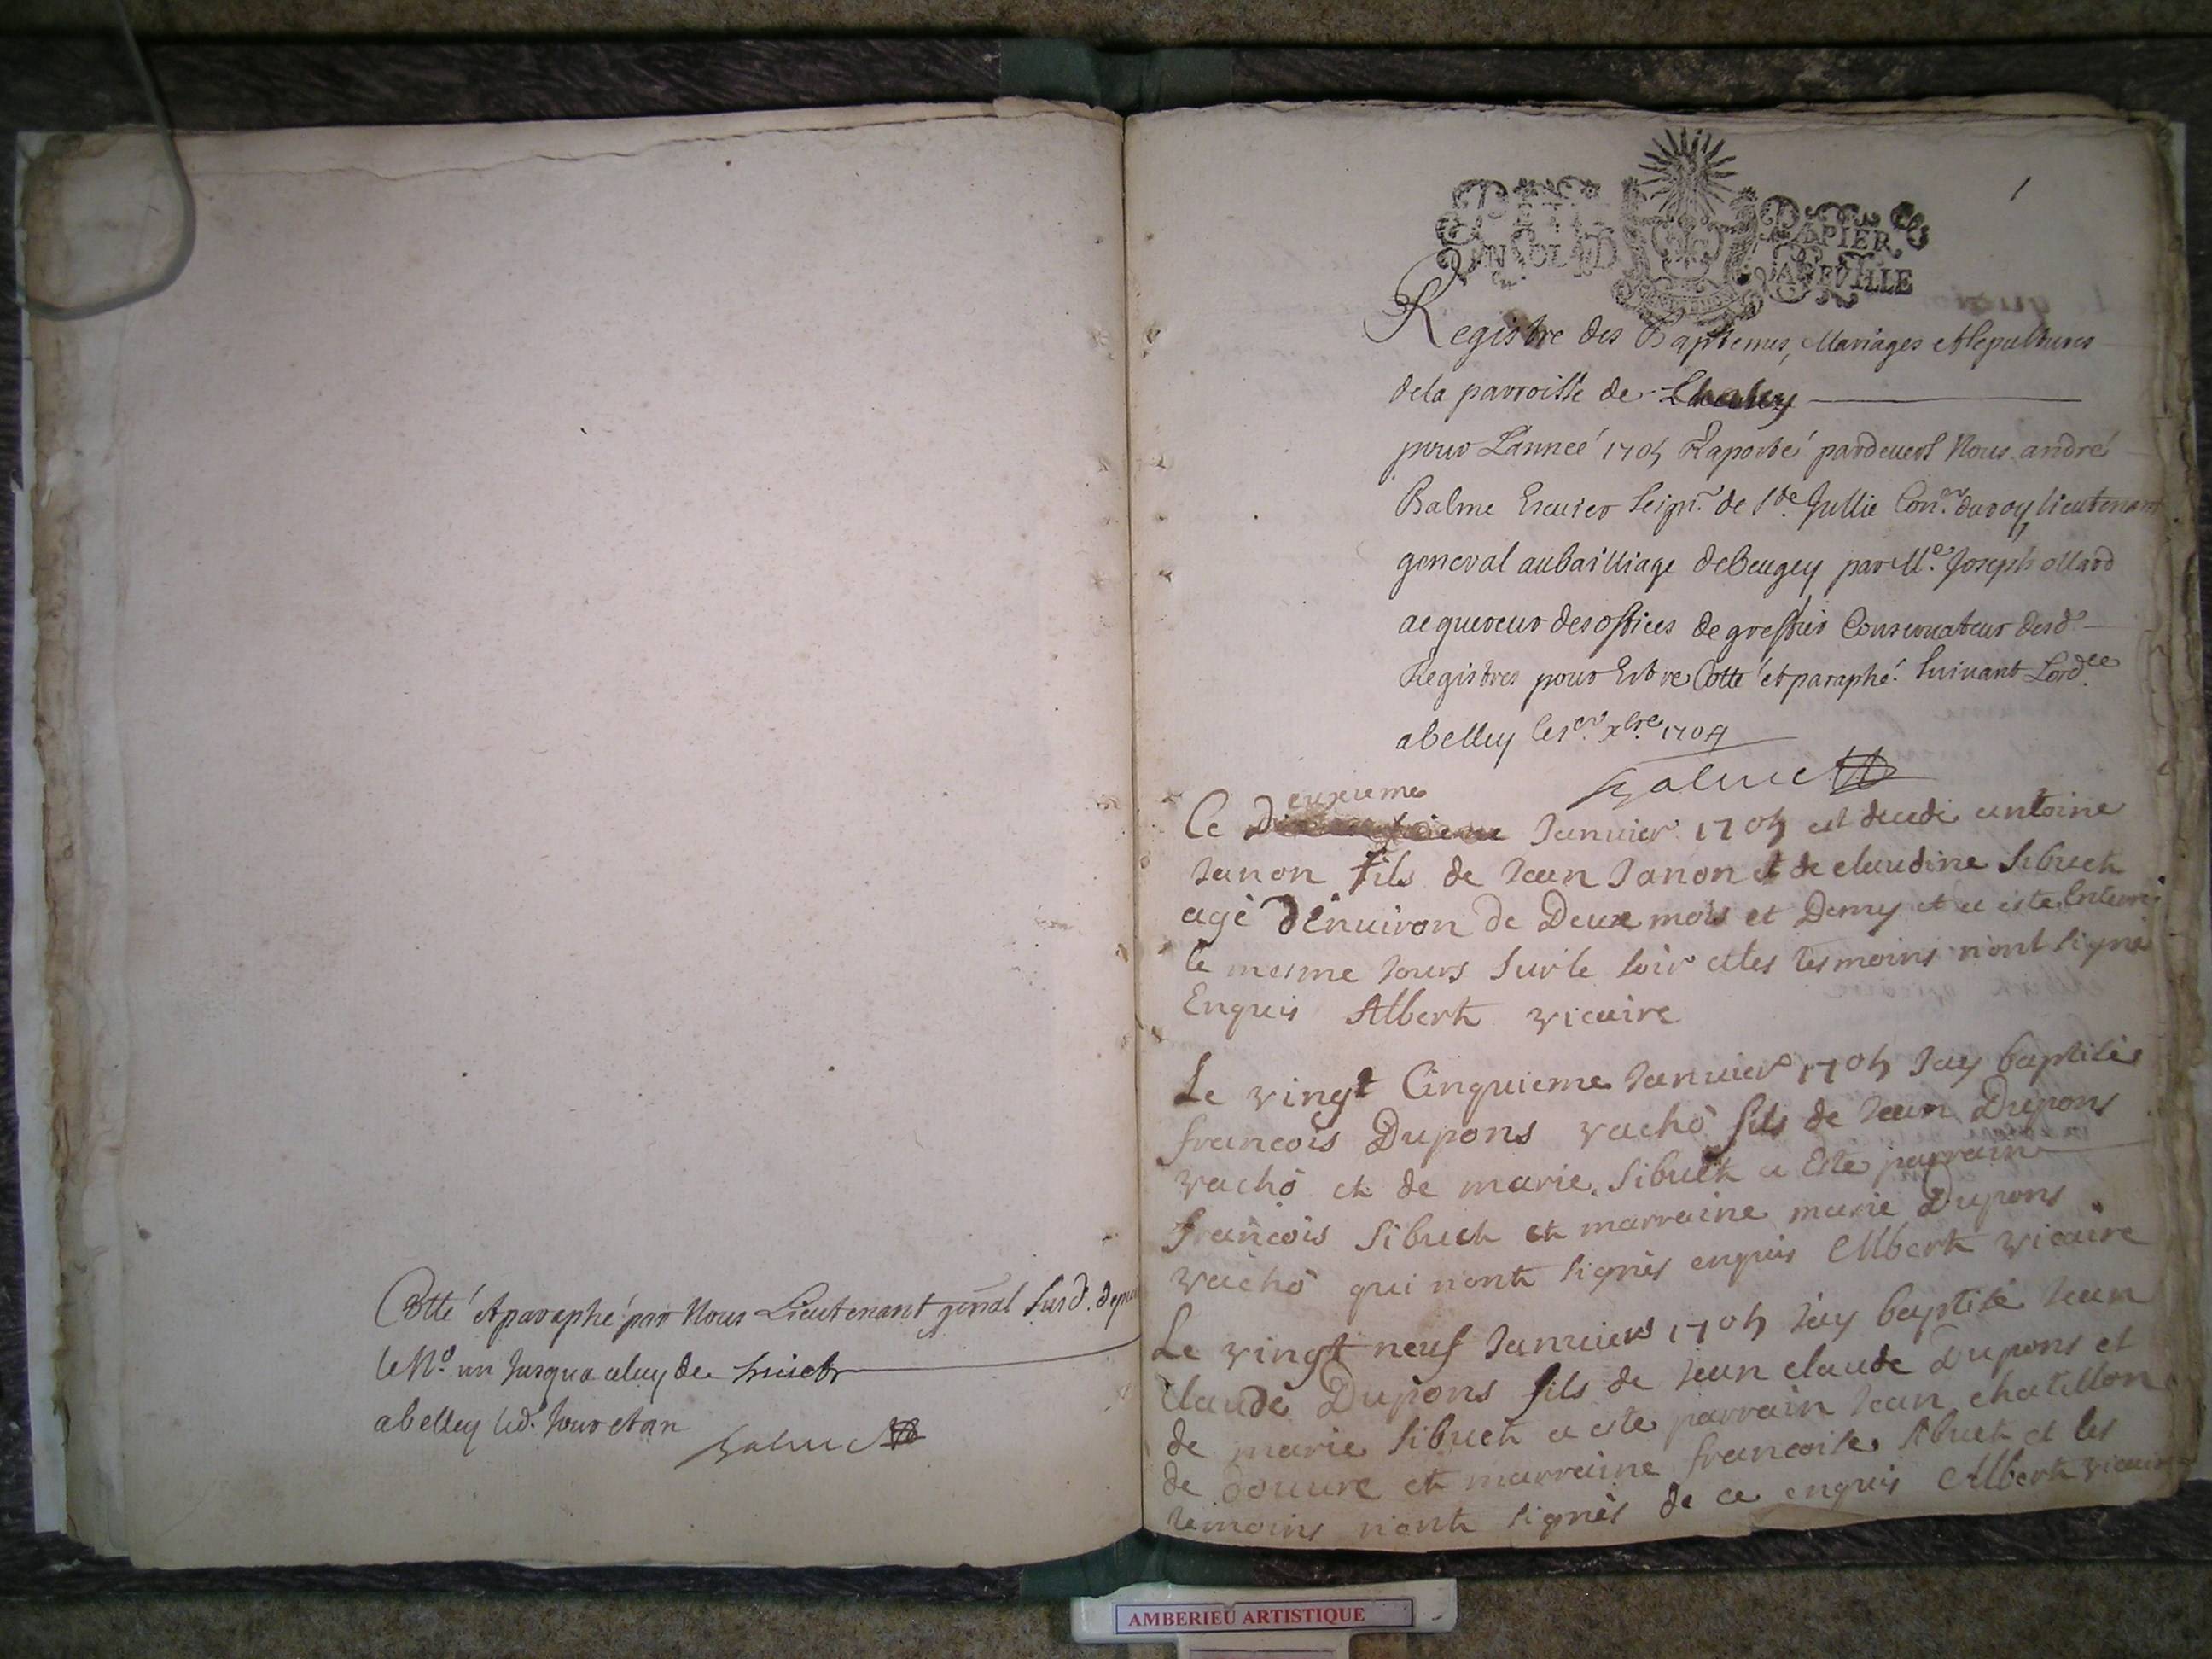 Cotté et paraphé par Nous Lieutenant gñal susd. depuis
le N.o un Jusqua celuy de huict
a belley led. Jour et an
Balme
1
PAPIER
Registre des Baptemes, Mariages et sepultures
dela parroisse de Chaley
pour Lanneé 1705 Raporté pardevers Nous andré
Balme Escuier seign.r de s.te Jullie Con.er du roy, lieutenant
general au bailliage de Beugey par M.e Joseph
acquereur des offices de greffier Conservateur desd.
Registres pour Estre Cotté et paraphé suivant Lord.ce
a belley le 1.er xbre 1704
Balme
Ce Deuxieme Janvier 1705 est decedé antoine
Janon fils de Jean Janon et de claudine sibuet
agé d'Environ de Deux mois et Demy et a esté Enterré
le mesme Jours sur le soir et les tesmoins n'ont signé
Enquis Albert vicaire
Le vingt Cinquieme Janvier 1705 Jay baptisés
francois Dupons vachô fils de Jean Dupons
vachô et de marie sibuet a Esté parrain
francois sibuet et marraine marie Dupons
vachô qui n'ont signés enquis Albert vicaire
Le vingt neuf Janviers 1705 Jay baptisé Jean
claude Dupons fils de Jean claude Dupons et
de marie sibuet a esté parrain Jean chatillon
de douvre et marraine francoise sibuet et les
temoins n'ont signés de ce enquis Albert vicaire
AMBERIEU ARTISTIQUE